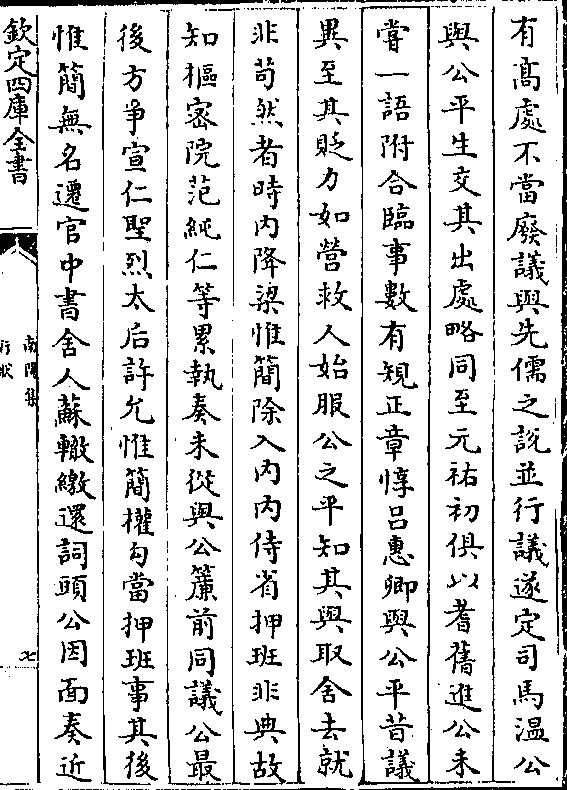 有髙處不當廢議與先儒之説並行議遂定司馬温公
與公平生交其出處略同至元祐初俱以耆舊進公未
嘗一語附合臨事數有規正章惇吕惠卿與公平昔議
異至其貶力如營救人始服公之平知其與取舍去就
非苟然者時内降梁惟簡除入内内侍省押班非典故
知樞宻院范純仁等累執奏未從與公簾前同議公最
後方爭宣仁聖烈太后許允惟簡權勾當押班事其後
惟簡無名遷官中書舍人蘇轍繳還詞頭公因面奏近
欽定四庫全書
南陽集
行狀
七